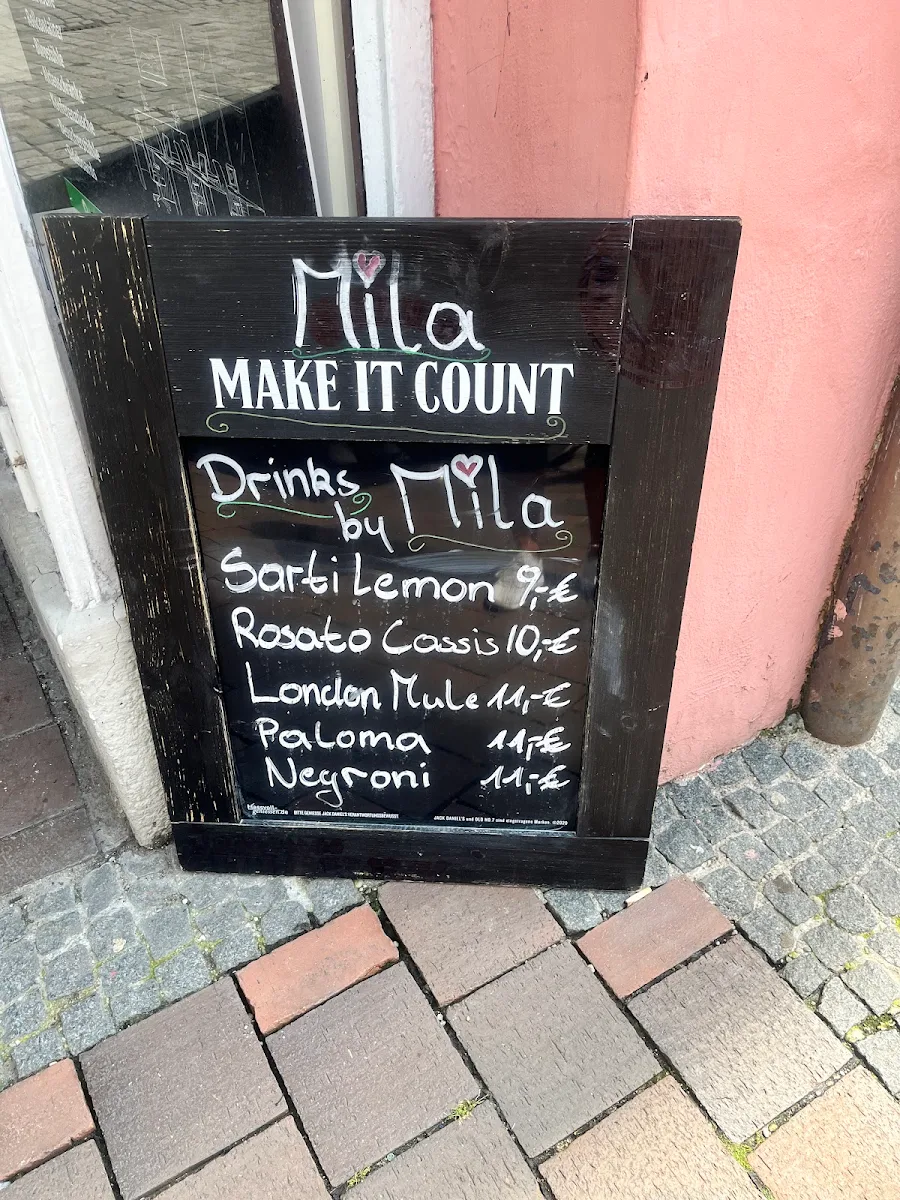 Mila
MAKE IT COUNT
Drinks
by Mila
Sarti Lemon 9,-€
Rosato Cassis 10,-€
London Mule 11,-€
Paloma 11,-€
Negroni 11,-€
massvoll-
geniessen.de
BITTE GENIESSE JACK DANIEL'S VERANTWORTUNGSBEWUSST.
JACK DANIEL'S und OLD NO.7 sind eingetragene Marken. ©2020